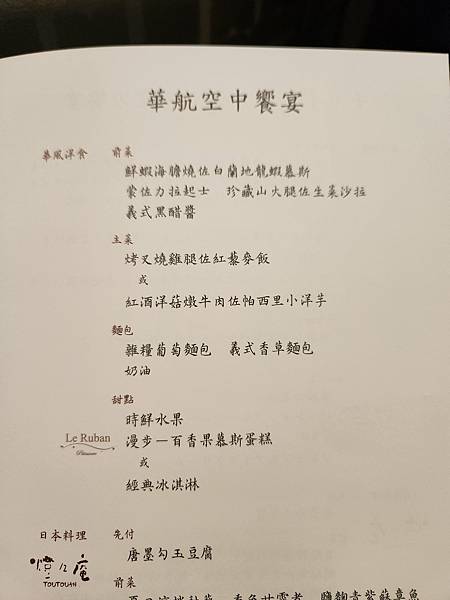 華航空中饗宴
華風洋食 前菜
鮮蝦海膽燒佐白蘭地龍蝦慕斯
蒙佐力拉起士 珍藏山火腿佐生菜沙拉
義式黑醋醬
主菜
烤叉燒雞腿佐紅藜麥飯
或
紅酒洋菇燉牛肉佐帕西里小洋芋
麵包
雜糧葡萄麵包 義式香草麵包
奶油
甜點
時鮮水果
Le Ruban 漫步－百香果慕斯蛋糕
Pâtisserie
或
經典冰淇淋
日本料理 先付
唐墨勾玉豆腐
TOUTOUAN
前菜